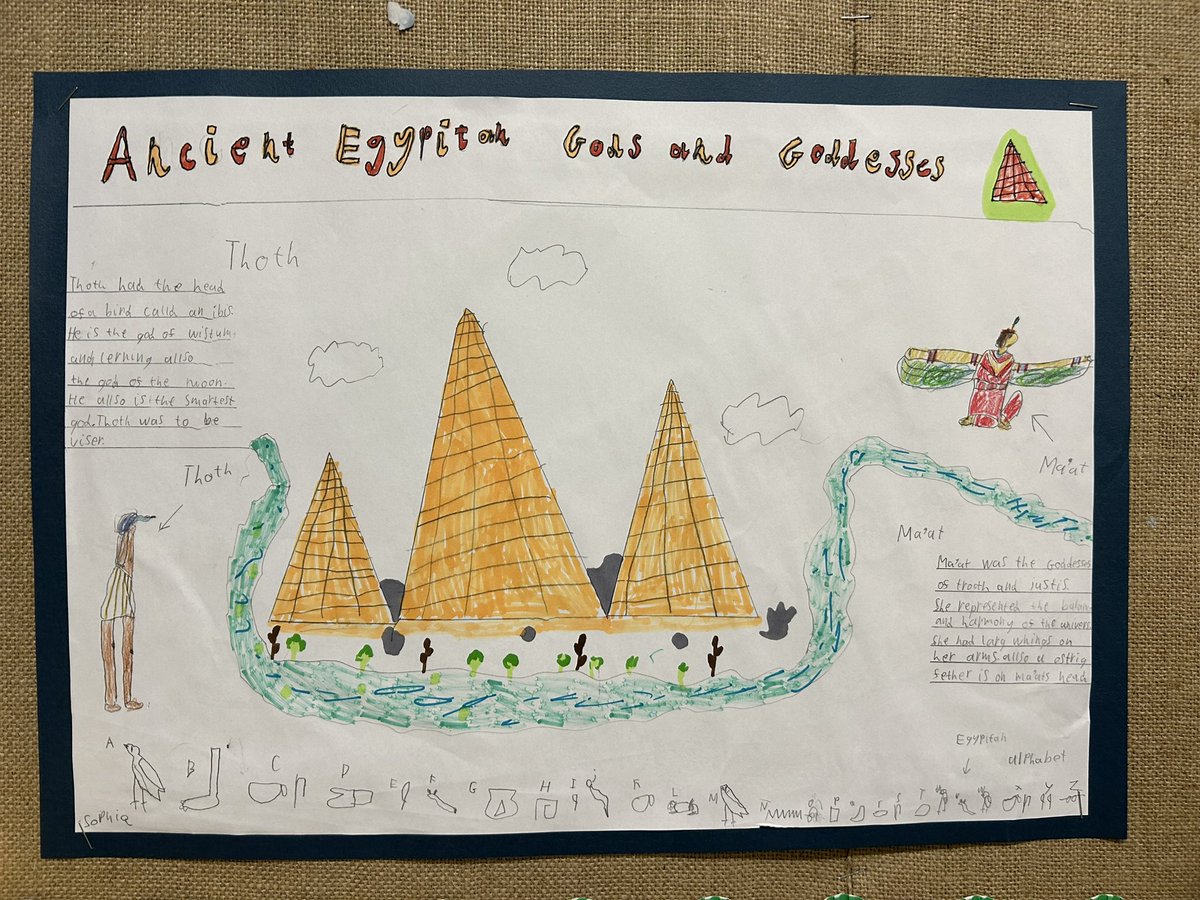 Ancient Egypitan Gods and Goddesses
Thoth
Thoth had the head
of a bird calld an ibis.
He is the god of wistum
and lerning allso
the god of the moon.
He allso is the smartest
god. Thoth was to be
viser.
Thoth
Ma'at
Ma'at
Ma'at was the Goddesses
of trooth and justis.
She represented the balan
and harmony of the univers
She had larg whings on
her arms. allso a ostrig
fether is on ma'ats head
Egypitan
alphabet
A B C D E F G H I J K L M N
Sophia